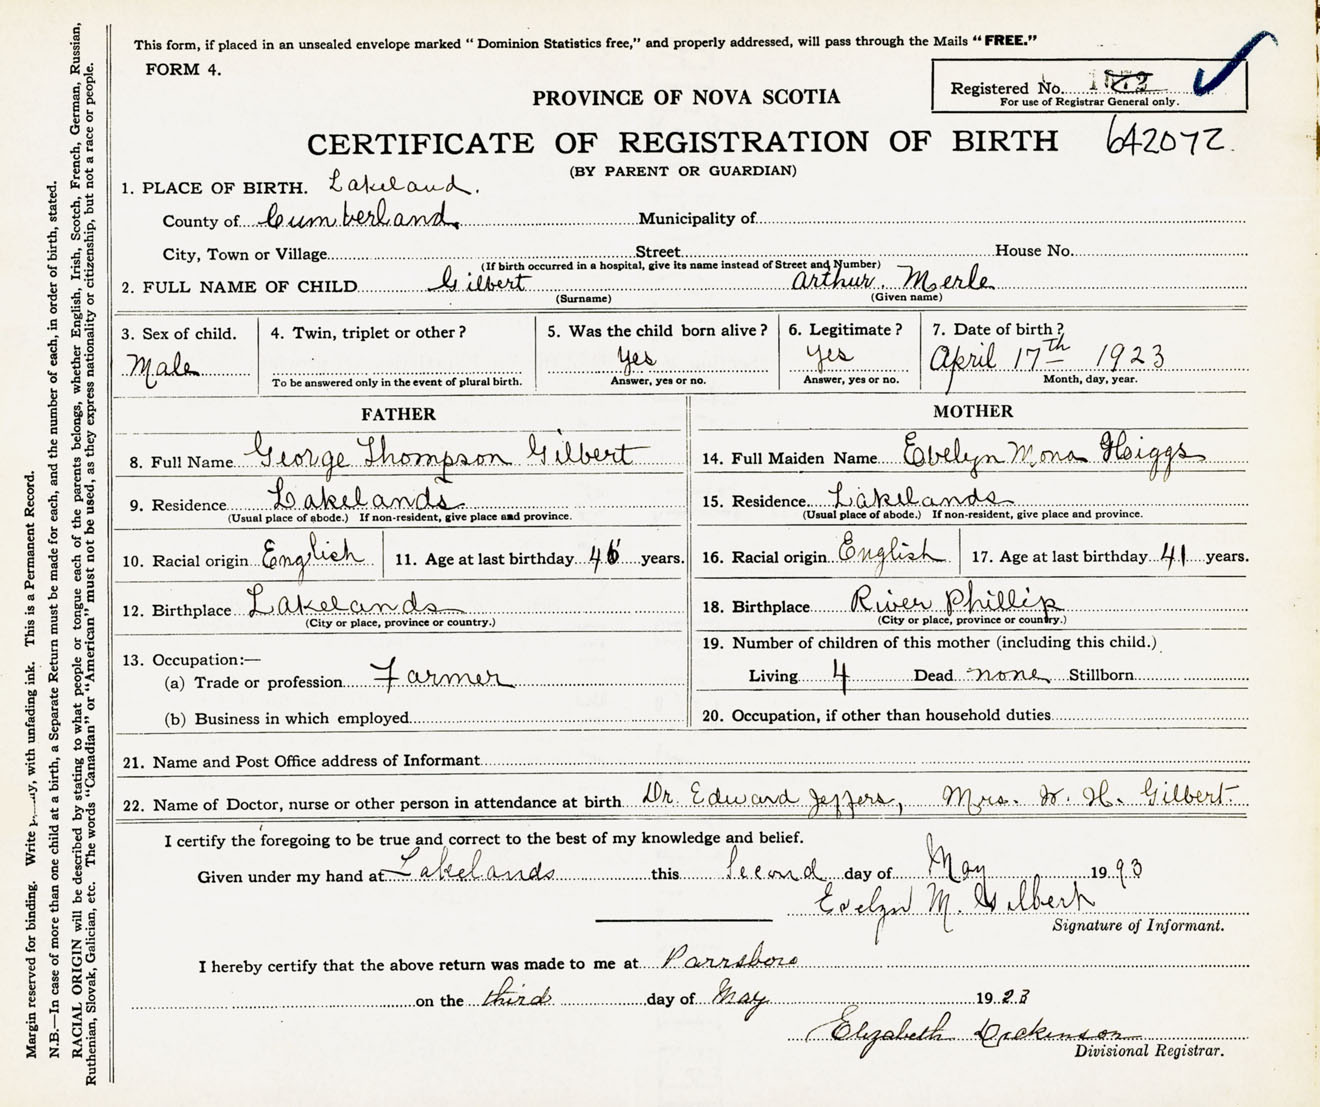 This form, if placed in an unsealed envelope marked " Dominion Statistics free," and properly addressed, will pass through the Mails "FREE."
FORM 4.
Registered No.
For use of Registrar General only.
PROVINCE OF NOVA SCOTIA
CERTIFICATE OF REGISTRATION OF BIRTH 642072.
(BY PARENT OR GUARDIAN)
1. PLACE OF BIRTH. Lakeland.
County of Cumberland, Municipality of
City, Town or Village Street House No.
(If birth occurred in a hospital, give its name instead of Street and Number)
2. FULL NAME OF CHILD Gilbert Arthur. Merle
(Surname) (Given name)
3. Sex of child. 4. Twin, triplet or other? 5. Was the child born alive? 6. Legitimate? 7. Date of birth?
Male yes yes April 17th 1923
To be answered only in the event of plural birth. Answer, yes or no. Answer, yes or no. Month, day, year.
FATHER
8. Full Name George Thompson Gilbert
9. Residence Lakelands
(Usual place of abode.) If non-resident, give place and province.
10. Racial origin English 11. Age at last birthday 46 years.
12. Birthplace Lakelands
(City or place, province or country.)
13. Occupation:—
(a) Trade or profession Farmer
(b) Business in which employed
MOTHER
14. Full Maiden Name Evelyn Mona Higgs
15. Residence Lakelands
(Usual place of abode.) If non-resident, give place and province.
16. Racial origin English 17. Age at last birthday 41 years.
18. Birthplace River Phillip
(City or place, province or country.)
19. Number of children of this mother (including this child.)
Living 4 Dead none Stillborn
20. Occupation, if other than household duties
21. Name and Post Office address of Informant
22. Name of Doctor, nurse or other person in attendance at birth Dr. Edward Jeffers, Mrs. H. Gilbert.
I certify the foregoing to be true and correct to the best of my knowledge and belief.
Given under my hand at Lakelands this Second day of May 1993
Evelyn M. Gilbert
Signature of Informant.
I hereby certify that the above return was made to me at Parrsboro
on the third day of May 1923
Elizabeth Dickinson
Divisional Registrar.
Margin reserved for binding. Write with unfading ink. This is a Permanent Record.
N.B.—In case of more than one child at a birth, a Separate Return must be made for each, and the number of each, in order of birth, stated.
RACIAL ORIGIN will be described by stating to what people or tongue each of the parents belongs, whether English, Irish, Scotch, French, German, Russian,
Ruthenian, Slovak, Galician, etc. The words "Canadian" or "American" must not be used, as they express nationality or citizenship, but not a race or people.